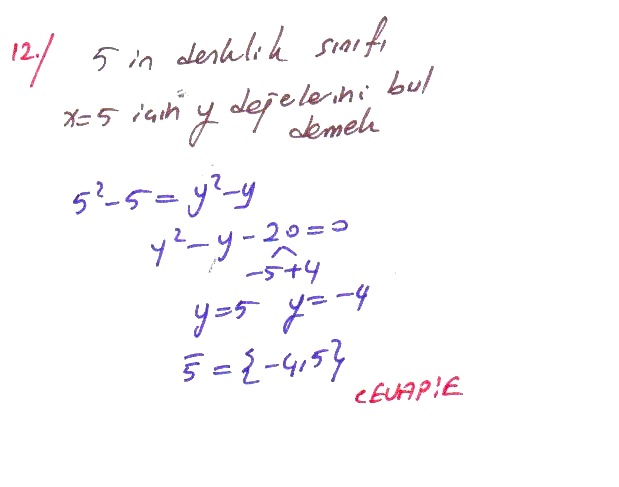 12./ 5 in denklik sınıfı
x=5 için y değelerini bul
demek
5²-5=y²-y
y²-y-20=0
-5+4
y=5 y=-4
5̄={-4,5}
CEVAP:E